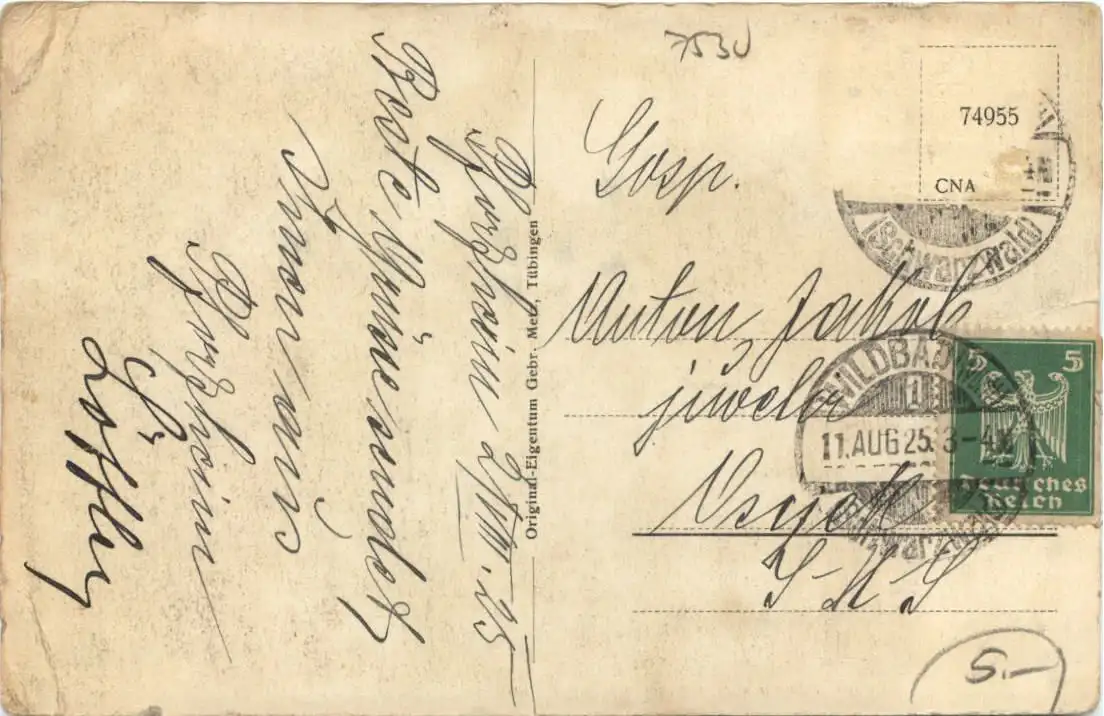 Pforzheim 2/VIII. 25
Beste Grüsse sendet
Ihnen aus
Pforzheim
Löffler
Original-Eigentum Gebr. Metz, Tübingen
7530
74955
CNA
(Schwarzwald)
Gosp.
Anton Jakob
juwelir
Osijek
S-H-S
WILDBAD
1
11.AUG 25. 3-4
(SCHWARZWALD)
5 5
Deutsches
Reich
5.-